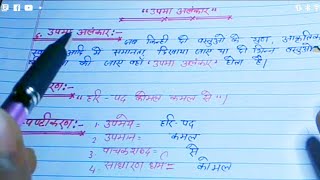 "उपमा अलंकार"
उपमा अलंकार:-
जब किन्ही दो वस्तुओं के गुण, आकृति
में समानता दिखाया जाए या दो भिन्न वस्तुओं
की जाए वहाँ 'उपमा अलंकार' होता है।
"हरि-पद कोमल कमल से"
1. उपमेय= हरि-पद
2. उपमान= कमल
3. वाचक शब्द= से
4. साधारण धर्म= कोमल